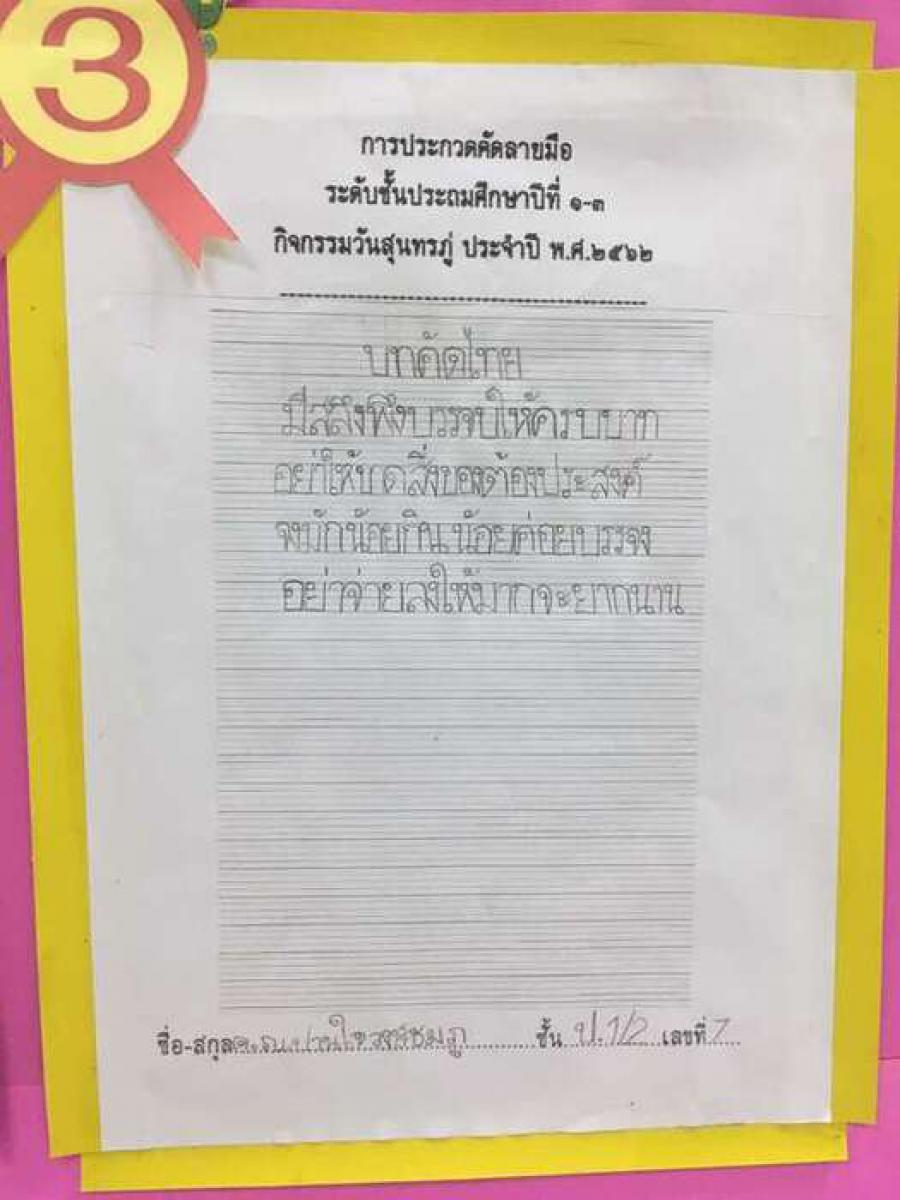 3
การประกวดคัดลายมือ
ระดับชั้นประถมศึกษาปีที่ ๑-๓
กิจกรรมวันสุนทรภู่ ประจำปี พ.ศ.๒๕๖๒
บทคัดไทย
มีสลึงพึงบรรจบให้ครบบาท
อย่าให้ขาดสิ่งของต้องประสงค์
จงมักน้อยกินน้อยค่อยบรรจง
อย่าจ่ายลงให้มากจะยากนาน
ชื่อ-สกุล ชั้น ป.1/2 เลขที่ 7